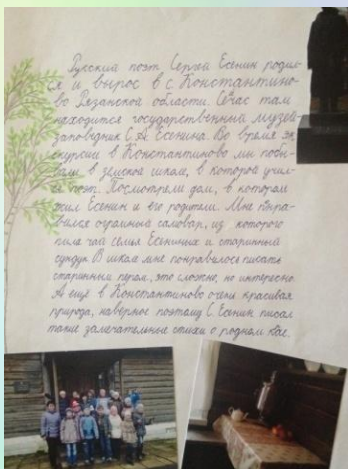 Русский поэт Сергей Есенин родил-
ся и вырос в с. Константино-
во Рязанской области. Сейчас там
находится государственный музей-
заповедник С.А. Есенина. Во время эк-
скурсии в Константиново мы побы-
вали в земской школе, в которой учил-
ся поэт. Посмотрели дом, в котором
жил Есенин и его родители. Мне понра-
вился огромный самовар, из которого
пила чай семья Есениных и старинный
сундук. В школе мне понравилось писать
старинным пером, это сложно, но интересно.
А ещё в Константиново очень красивая
природа, наверное поэтому С. Есенин писал
такие замечательные стихи о родном крае.